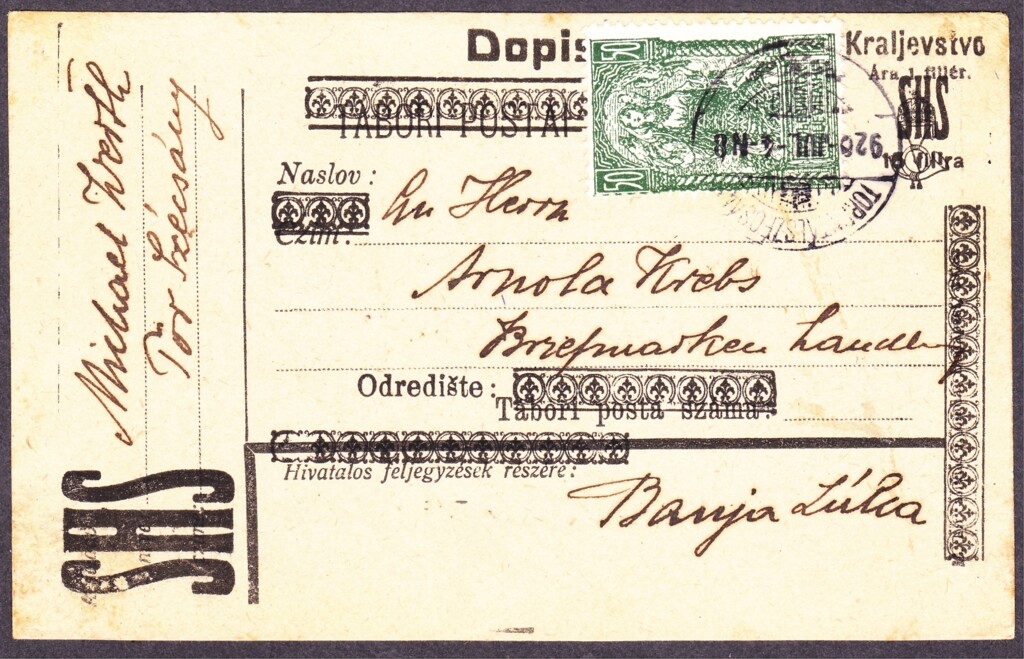 Dopis
Kraljevstvo
Ára 1 fillér.
SHS
10 filira
TÁBORI POSTAI
50
50
926 -III -4 -N8
Naslov :
An Herrn
Czím:
Arnola Krebs
Briefmarken handlung
Odredište :
Tábori posta száma :
Hivatalos feljegyzések részére :
Banja Lúka
Michael Werth
Tör Szécsány
SHS